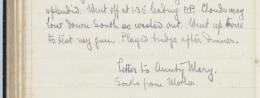 splendid. Went off at 1.35 leading B.P. Clouds very
low down South so washed out. Went up there
to test my gun. Played bridge after dinner.
Letter to Aunty Mary.
Socks from Mother.